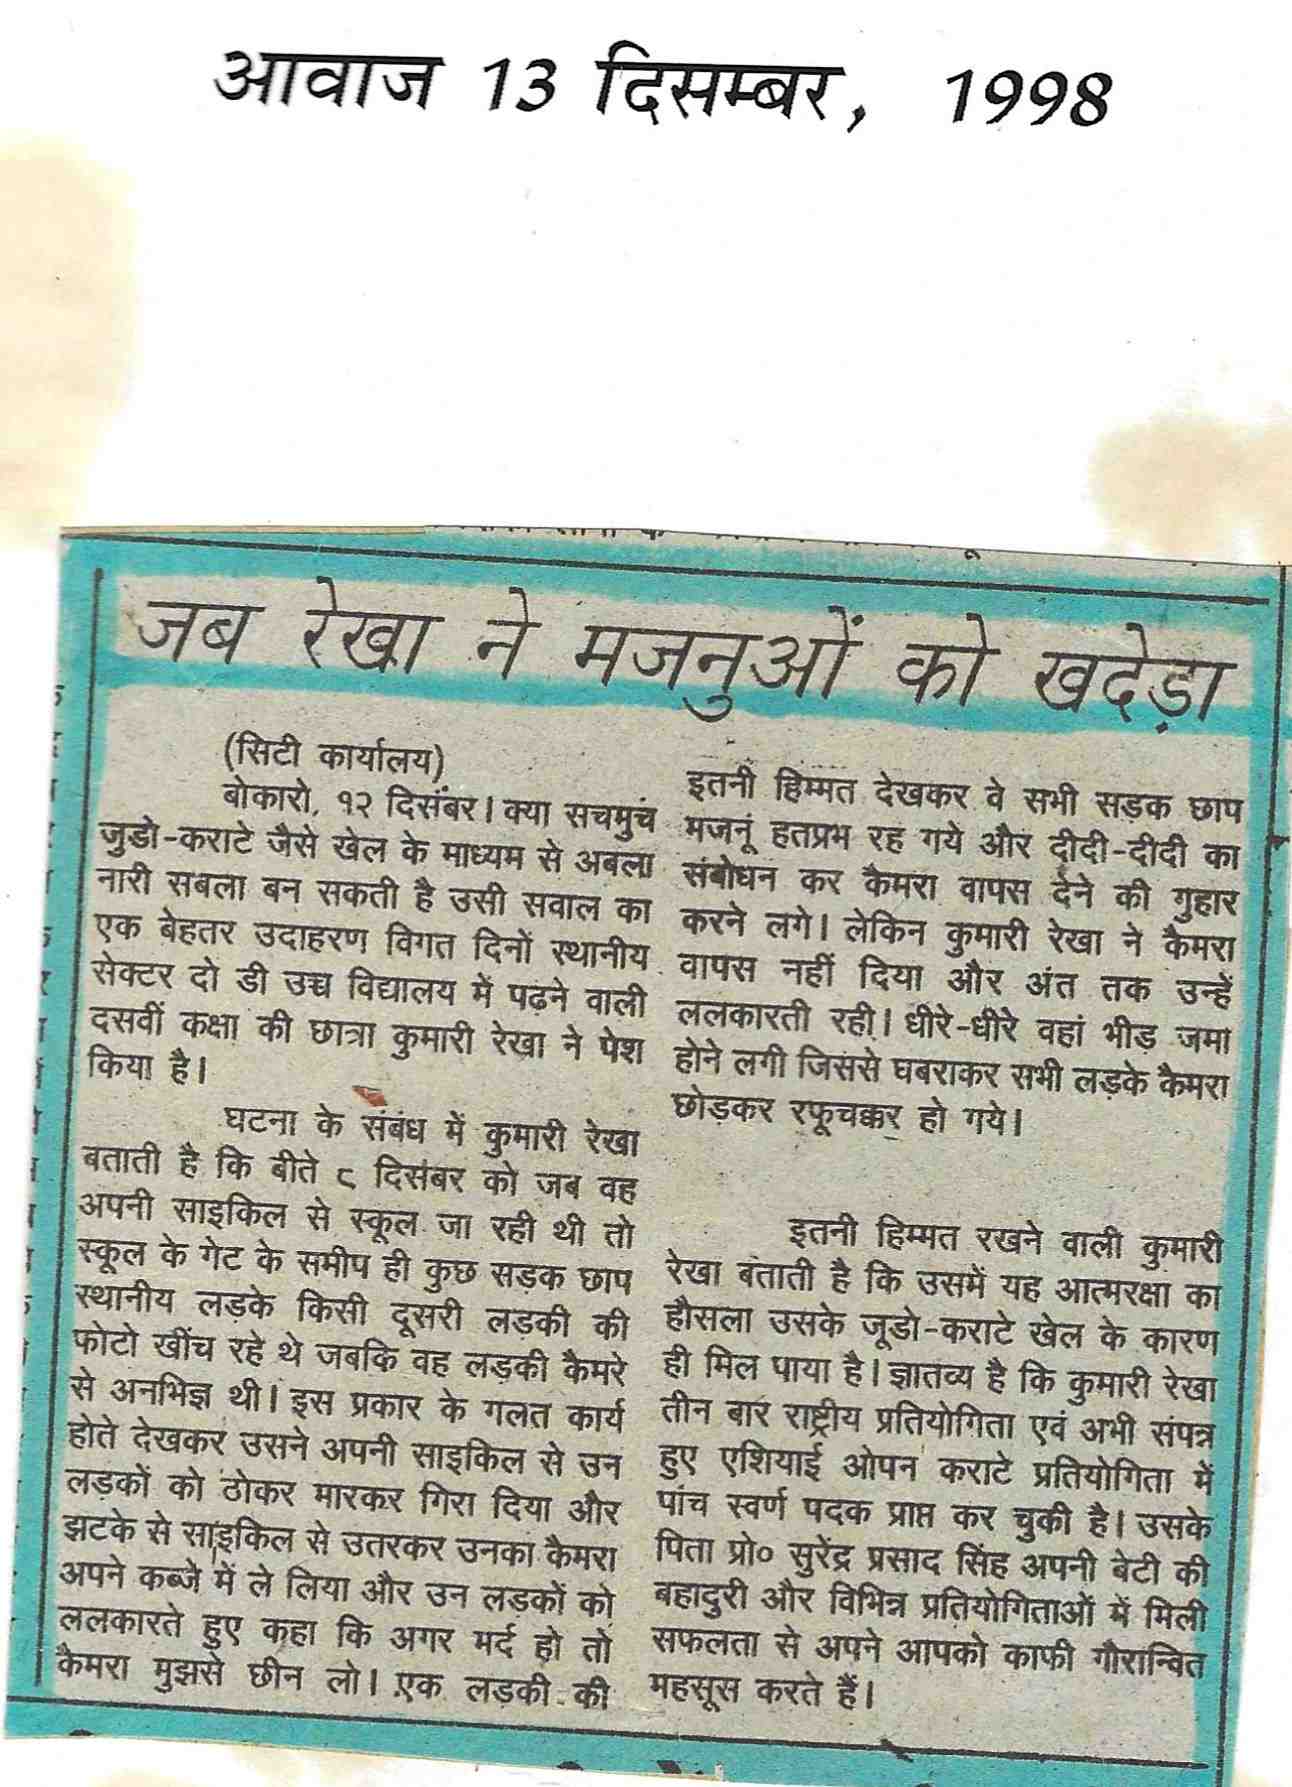 आवाज 13 दिसम्बर, 1998
जब रेखा ने मजनुओं को खदेड़ा
(सिटी कार्यालय)
बोकारो, १२ दिसंबर। क्या सचमुच
जुडो-कराटे जैसे खेल के माध्यम से अबला
नारी सबला बन सकती है उसी सवाल का
एक बेहतर उदाहरण विगत दिनों स्थानीय
सेक्टर दो डी उच्च विद्यालय में पढ़ने वाली
दसवीं कक्षा की छात्रा कुमारी रेखा ने पेश
किया है।
घटना के संबंध में कुमारी रेखा
बताती है कि बीते ८ दिसंबर को जब वह
अपनी साइकिल से स्कूल जा रही थी तो
स्कूल के गेट के समीप ही कुछ सड़क छाप
स्थानीय लड़के किसी दूसरी लड़की की
फोटो खींच रहे थे जबकि वह लड़की कैमरे
से अनभिज्ञ थी। इस प्रकार के गलत कार्य
होते देखकर उसने अपनी साइकिल से उन
लड़कों को ठोकर मारकर गिरा दिया और
झटके से साइकिल से उतरकर उनका कैमरा
अपने कब्जे में ले लिया और उन लड़कों को
ललकारते हुए कहा कि अगर मर्द हो तो
कैमरा मुझसे छीन लो। एक लड़की की
इतनी हिम्मत देखकर वे सभी सड़क छाप
मजनूं हतप्रभ रह गये और दीदी-दीदी का
संबोधन कर कैमरा वापस देने की गुहार
करने लगे। लेकिन कुमारी रेखा ने कैमरा
वापस नहीं दिया और अंत तक उन्हें
ललकारती रही। धीरे-धीरे वहां भीड़ जमा
होने लगी जिससे घबराकर सभी लड़के कैमरा
छोड़कर रफूचक्कर हो गये।
इतनी हिम्मत रखने वाली कुमारी
रेखा बताती है कि उसमें यह आत्मरक्षा का
हौसला उसके जूडो-कराटे खेल के कारण
ही मिल पाया है। ज्ञातव्य है कि कुमारी रेखा
तीन बार राष्ट्रीय प्रतियोगिता एवं अभी संपन्न
हुए एशियाई ओपन कराटे प्रतियोगिता में
पांच स्वर्ण पदक प्राप्त कर चुकी है। उसके
पिता प्रो० सुरेंद्र प्रसाद सिंह अपनी बेटी की
बहादुरी और विभिन्न प्रतियोगिताओं में मिली
सफलता से अपने आपको काफी गौरान्वित
महसूस करते हैं।